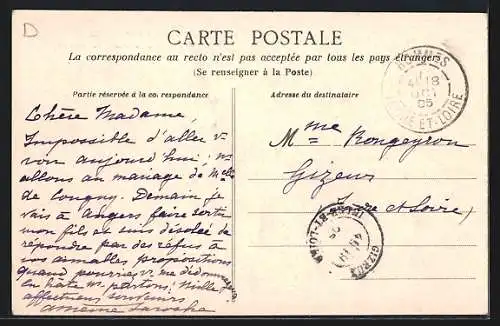 D
CARTE POSTALE
La correspondance au recto n'est pas acceptée par tous les pays étrangers
(Se renseigner à la Poste)
Partie réservée à la correspondance
Adresse du destinataire
Chère Madame,
Impossible d'aller v
voir aujourd'hui, ns
allons au mariage de Melle
de Longny. Demain je
vais à Angers faire sortir
mon fils et suis désolée de
répondre par des refus à
vos aimables propositions
quand pourrions ns me dédommager
en hâte ns partons, mille
affectueux souvenirs
Laroche
Mme Rougeyron
Gizeux
Indre et Loire
18
05
ET-LOIRE
GIZEUX
INDRE-ET-LOIRE
05